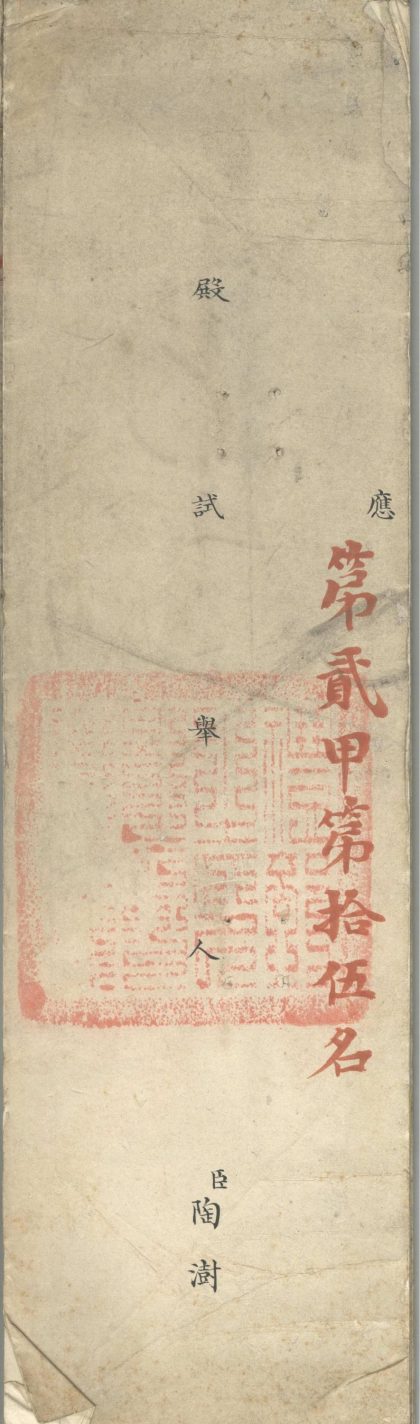 應
第貳甲第拾伍名
殿試舉人臣陶澍